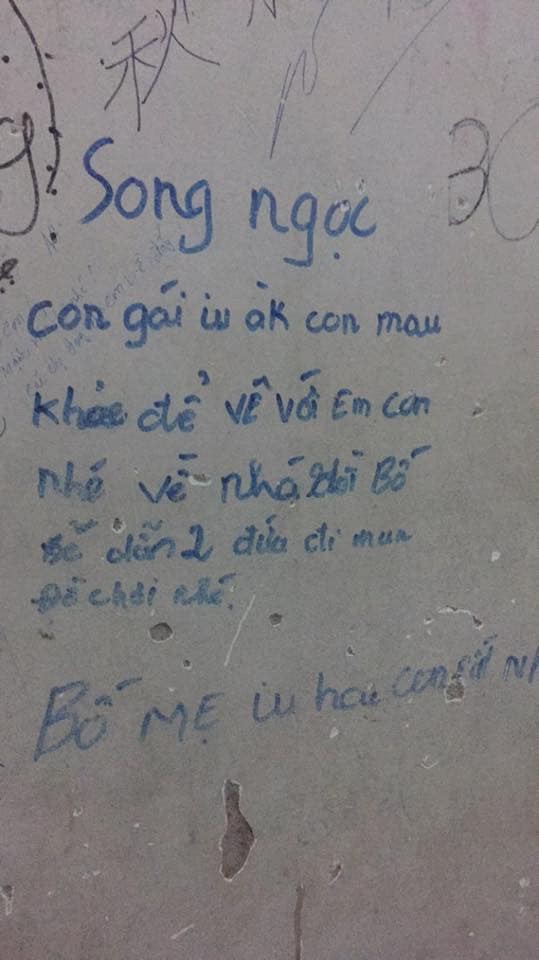 秋
30
Song ngọc
con gái iu àk con mau
khỏe để về với Em con
nhé về nhà rồi Bố
sẽ dẫn 2 đứa đi mua
Đồ chơi nhé.
Bố MẸ iu hai con